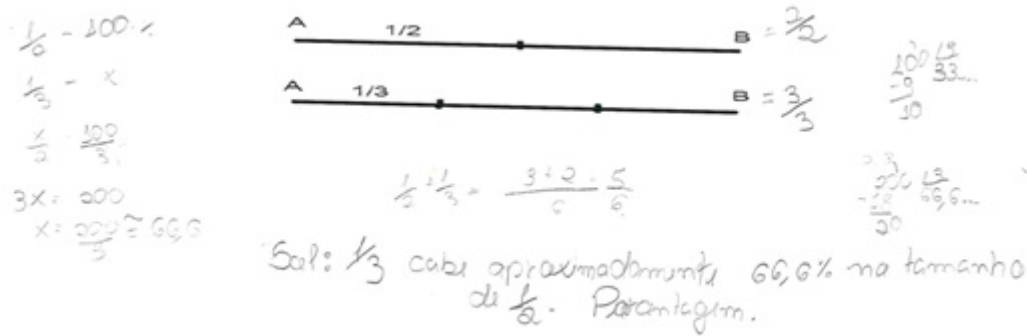 1/2 - 100%
1/3 - x
x/2 = 100/3
3x = 200
x = 200/3 ≅ 66,6
A 1/2 B = 2/2
A 1/3 B = 3/3
1/2 + 1/3 = 3+2/6 = 5/6
100 | 3
-9 33...
10
200 | 3
-18 66,6...
20
Sol: 1/3 cabe aproximadamente 66,6% no tamanho
de 1/2. Porcentagem.